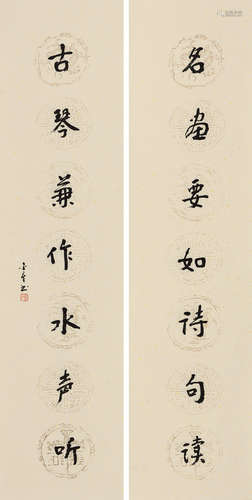 名画要如诗句读
古琴兼作水声听